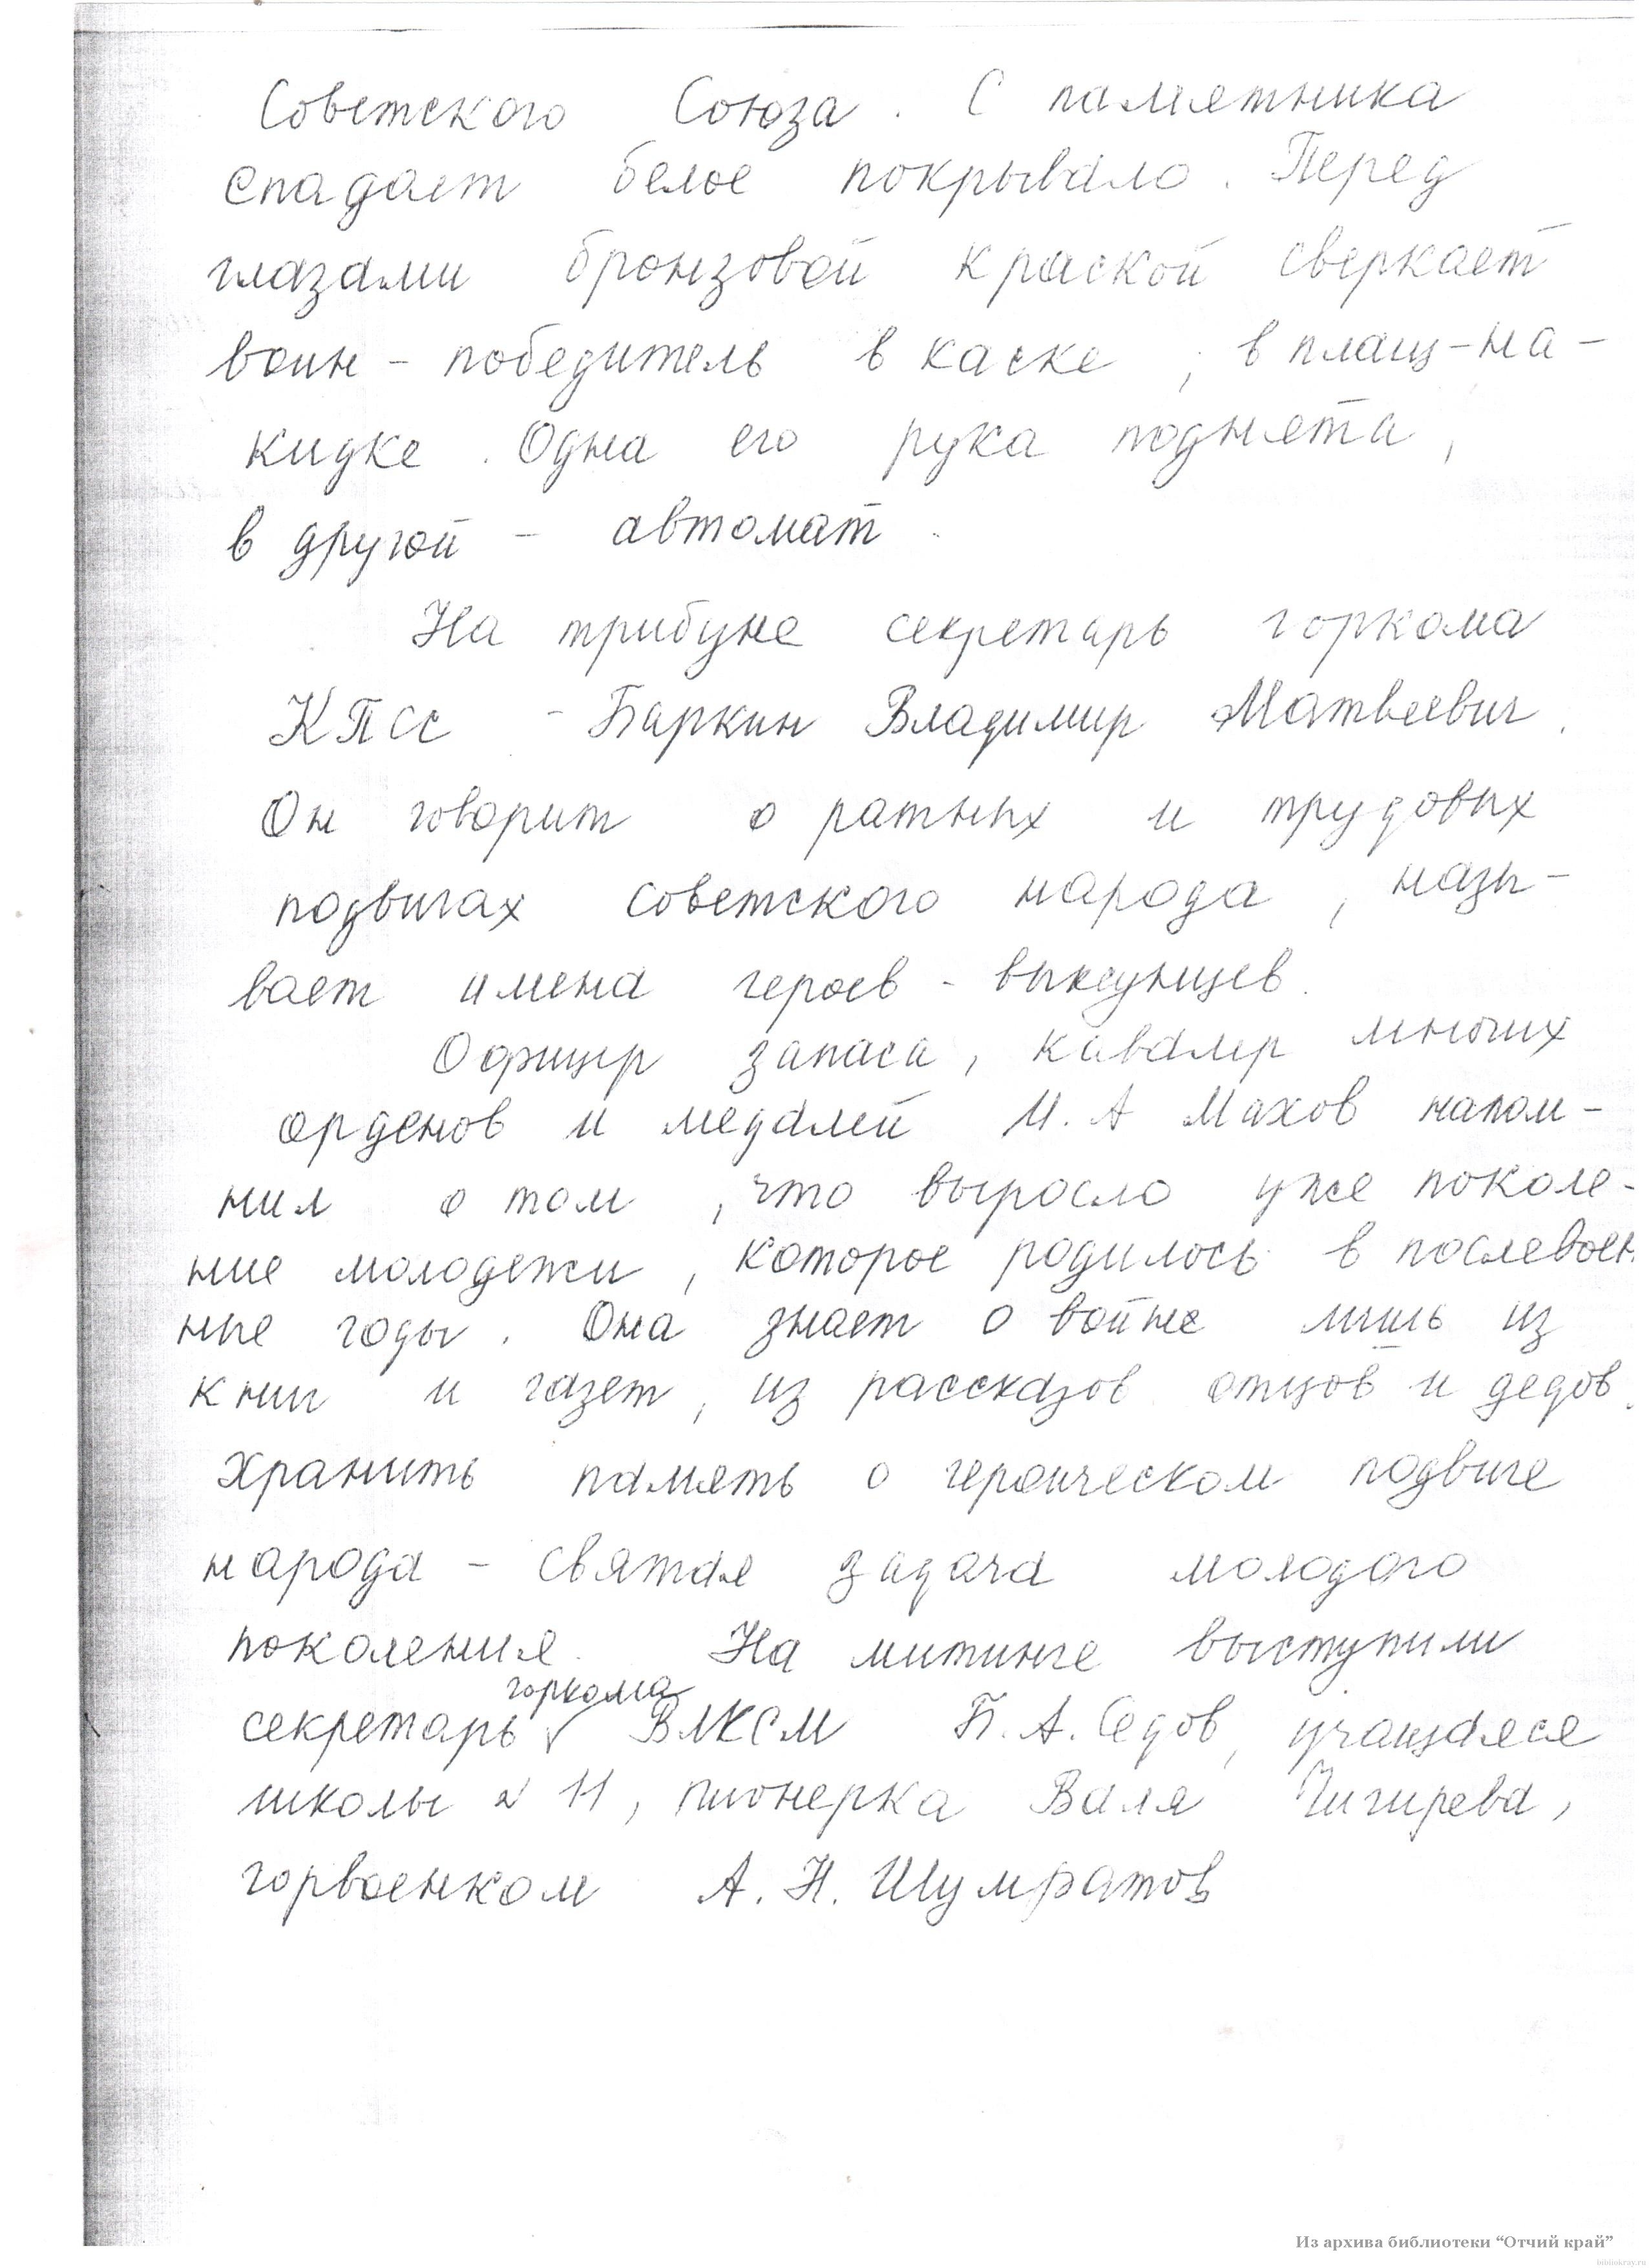 Советского Союза. С памятника
спадает белое покрывало. Перед
глазами бронзовой краской сверкает
воин - победитель в каске, в плащ-на-
кидке. Одна его рука поднята,
в другой - автомат.
На трибуне секретарь горкома
КПСС - Баркин Владимир Матвеевич.
Он говорит о ратных и трудовых
подвигах советского народа, назы-
вает имена героев - выксунцев.
Офицер запаса, кавалер многих
орденов и медалей И. А Махов напом-
нил о том, что выросло уже поколе-
ние молодежи, которое родилось в послевоен
ные годы. Она знает о войне лишь из
книг и газет, из рассказов отцов и дедов.
Хранить память о героическом подвиге
народа - святая задача молодого
поколения. На митинге выступили
горкома
секретарь √ ВЛКСМ Б. А. Седов, учащаяся
школы № 11, пионерка Валя Чигирева,
горвоенком А. Н. Шумратов
Из архива библиотеки “Отчий край”